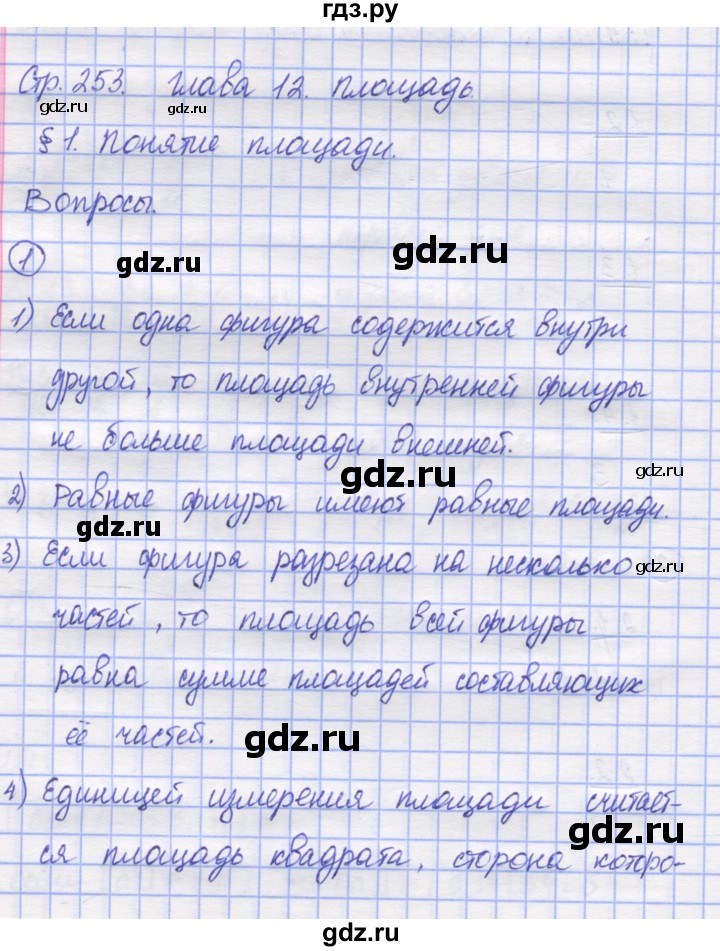 гдз.ру
Стр. 253. Глава 12. Площадь.
gdz.ru gdz.ru
§ 1. Понятие площади.
Вопросы.
gdz.ru
gdz.ru
1
1) Если одна фигура содержится внутри
gdz.ru gdz.ru
другой, то площадь внутренней фигуры
не больше площади внешней.
gdz.ru gdz.ru
2) Равные фигуры имеют равные площади.
gdz.ru
3) Если фигура разрезана на несколько
gdz.ru
частей, то площадь всей фигуры
равна сумме площадей составляющих
её частей.
gdz.ru
4) Единицей измерения площади считает-
gdz.ru
ся площадь квадрата, сторона которо-